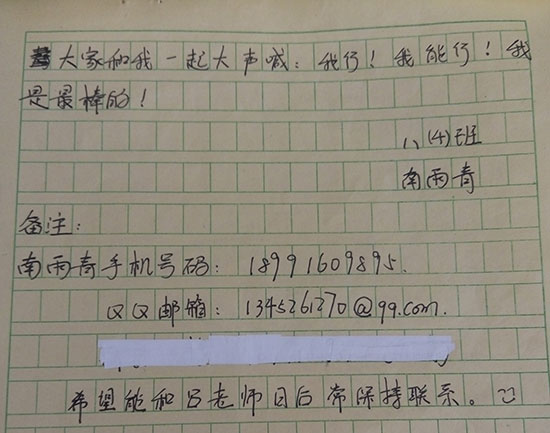 大家和我一起大声喊：我行！我能行！我
是最棒的！
八(4)班
南雨青
备注：
南雨青手机号码：18991609895.
QQ邮箱：1345261270@qq.com.
希望能和吕老师日后常保持联系。